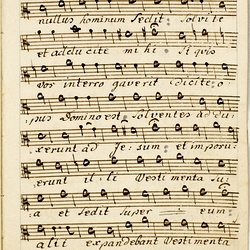 nullus hominum sedit. solvite
et adducite mihi si quis
vos interro gaverit dicite, o
pus Domino est. solventes addu:
xerunt ad Jesum et imposu:
erunt illi Vestimenta su:
a et sedit super eum:
alii expandebant Vestimenta